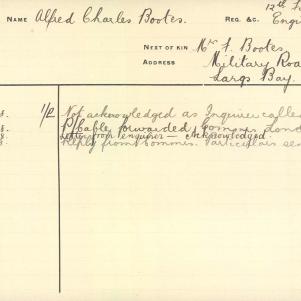 NAME Alfred Charles Bootes. REG. &C. 12th
Engi
NEST OF KIN Mr F. Bootes.
ADDRESS Military Roa
Largs Bay.
1/2 Not acknowledged as Inquirer calle
P/Cable forwarded, Lond
Letter from enquirer — Acknowledged
Reply from Commis. Particulars sen